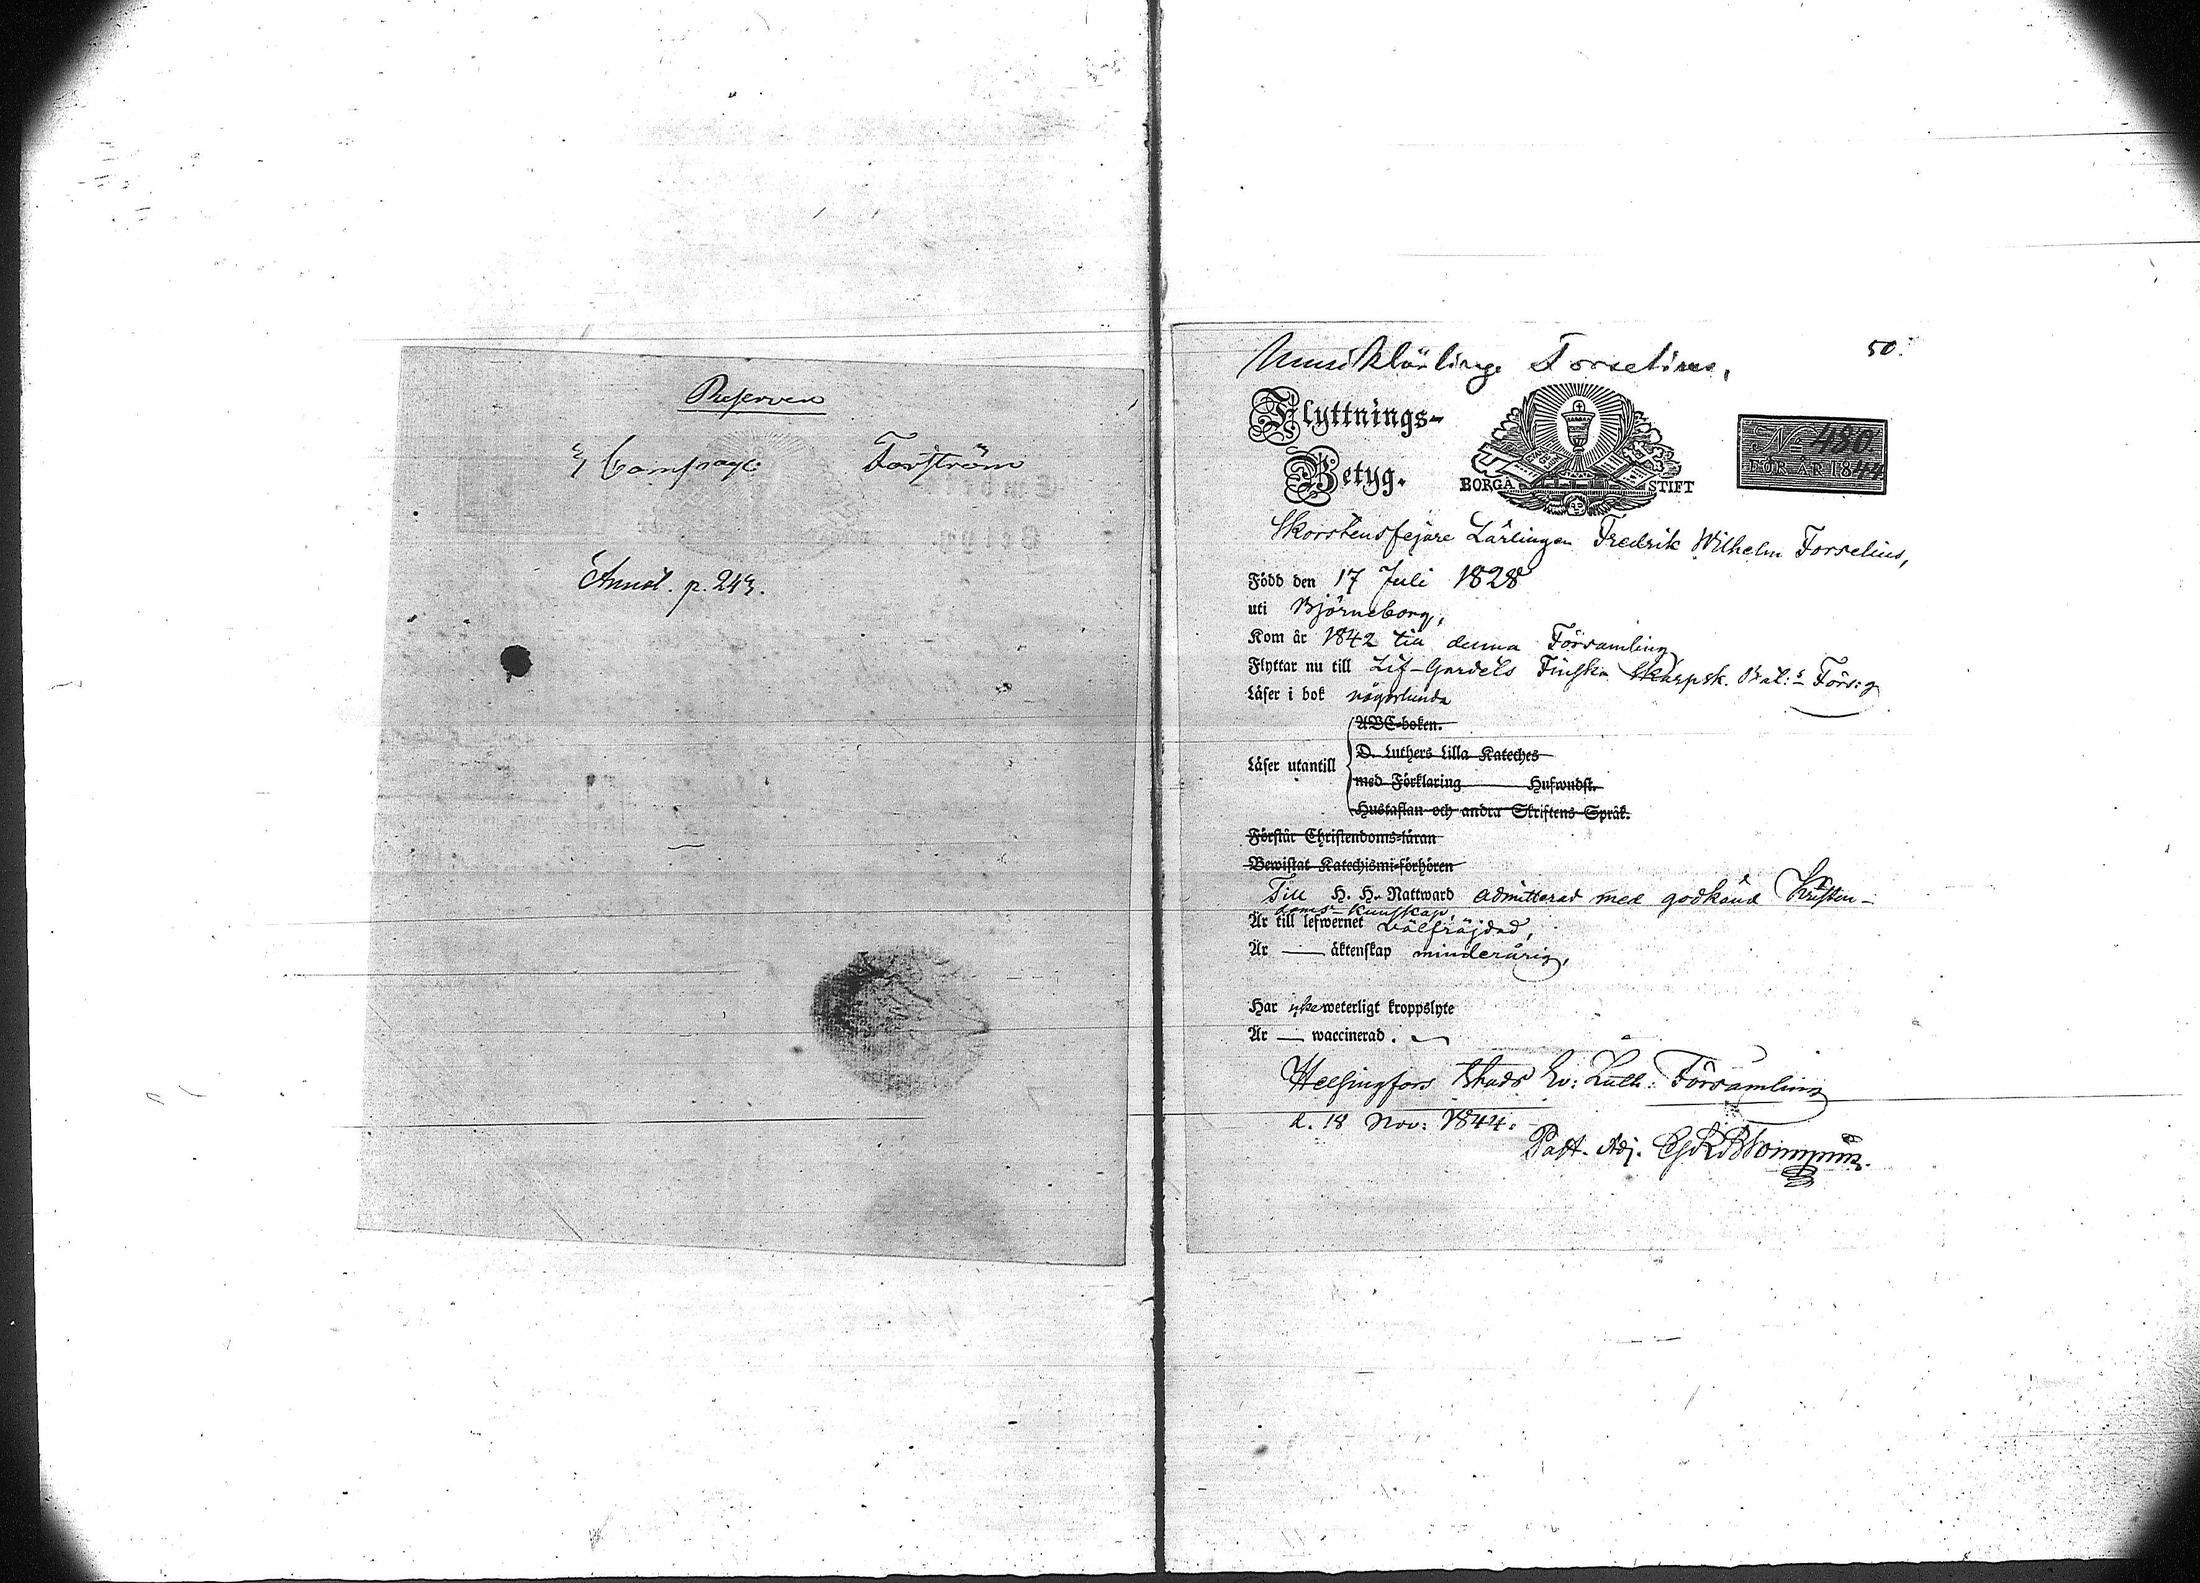 Reserven
Compagi Forström
Annot. p. 243.
50.
Musiklärling Forselius,
Flyttnings-
Betyg.
BORGÅ STIFT
No 480
FÖR ÅR 1844
Skorstensfejare Lärlingen Fredrik Wilhelm Forselius,
Född den 17 Juli 1828
uti Björneborg,
Kom år 1842 till denna Församling
Flyttar nu till Lif-Gardets Finska Skarpsk. Bat:s Förs:g
Läser i bok någorlunda
ABC-boken.
D. Luthers Lilla Kateches
Läser utantill
med Förklaring Hufwudst.
Hustaflan och andra Skriftens Språk.
Förstår Christendoms-läran
Bewistat Katechismi-förhören
Till H. H. Nattward admitterad med godkänd Kristen-
doms-kunskap,
Är till lefwernet wälfräjdad,
Är — äktenskap minderårig,
Har icke weterligt kroppslyte
Är — waccinerad.
Helsingfors Stads Ev: Luth: Församling
d. 18 Nov: 1844.
Past. Adj.